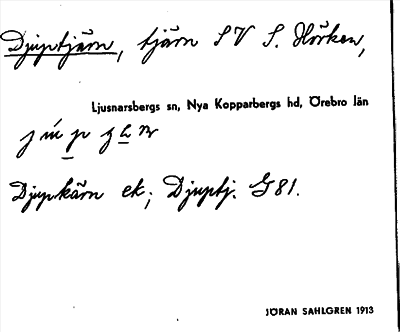 Djuptjärn, tjärn SV S. Hörken,
Ljusnarsbergs sn, Nya Kopparbergs hd, Örebro län
Djupkärn ek; Djuptj. G81.
JÖRAN SAHLGREN 1913